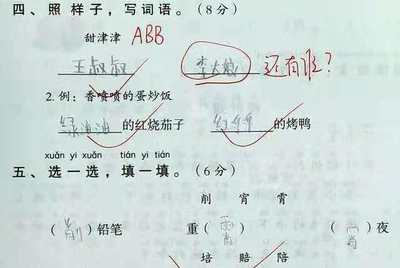 四、照样子，写词语。（8分）
甜津津 ABB
王叔叔 李大娘 还有谁？
2. 例：香喷喷的蛋炒饭
绿油油的红烧茄子 的烤鸭
xuǎn yi xuǎn tián yi tián
五、选一选，填一填。（6分）
削 宵 霄
（削）铅笔 重（霄） （宵）夜
培 赔 陪